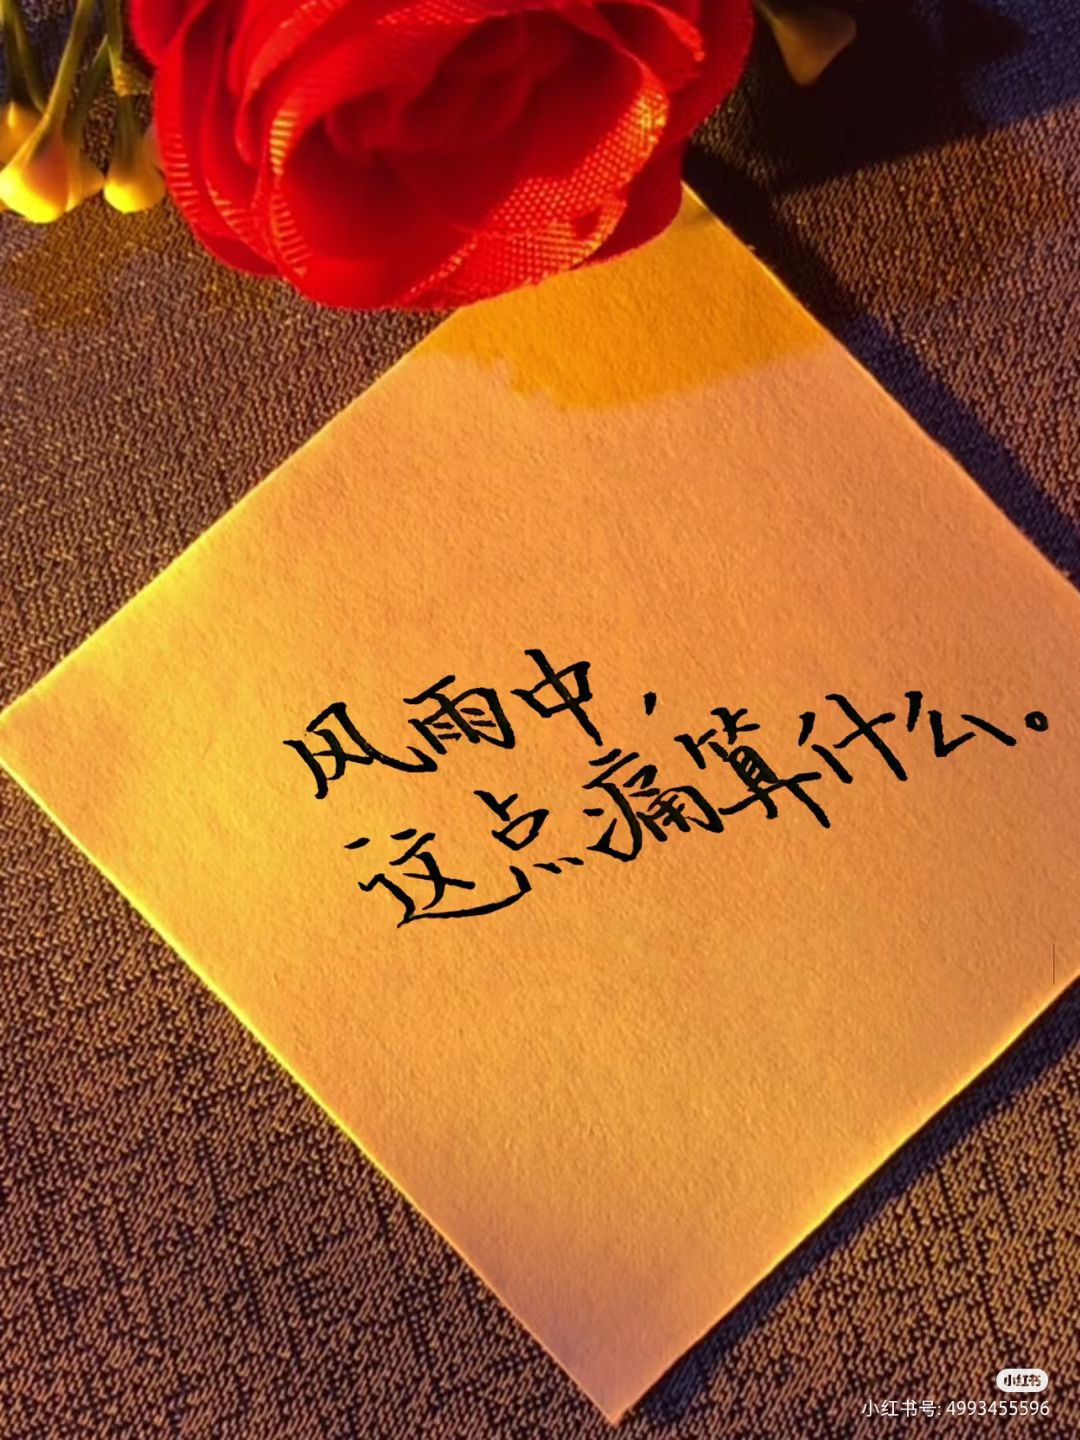 风雨中，
这点痛算什么。
小红书
小红书号: 4993455596